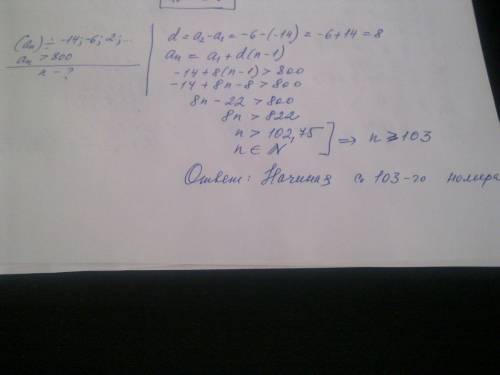 (aₙ) ÷ -14; -6; 2; ...
aₙ > 800
n - ?
d = a₂ - a₁ = -6 - (-14) = -6 + 14 = 8
aₙ = a₁ + d(n-1)
-14 + 8(n-1) > 800
-14 + 8n - 8 > 800
8n - 22 > 800
8n > 822
n > 102,75
n ∈ N ] ⇒ n ⩾ 103
Ответ: Начиная с 103-го номера